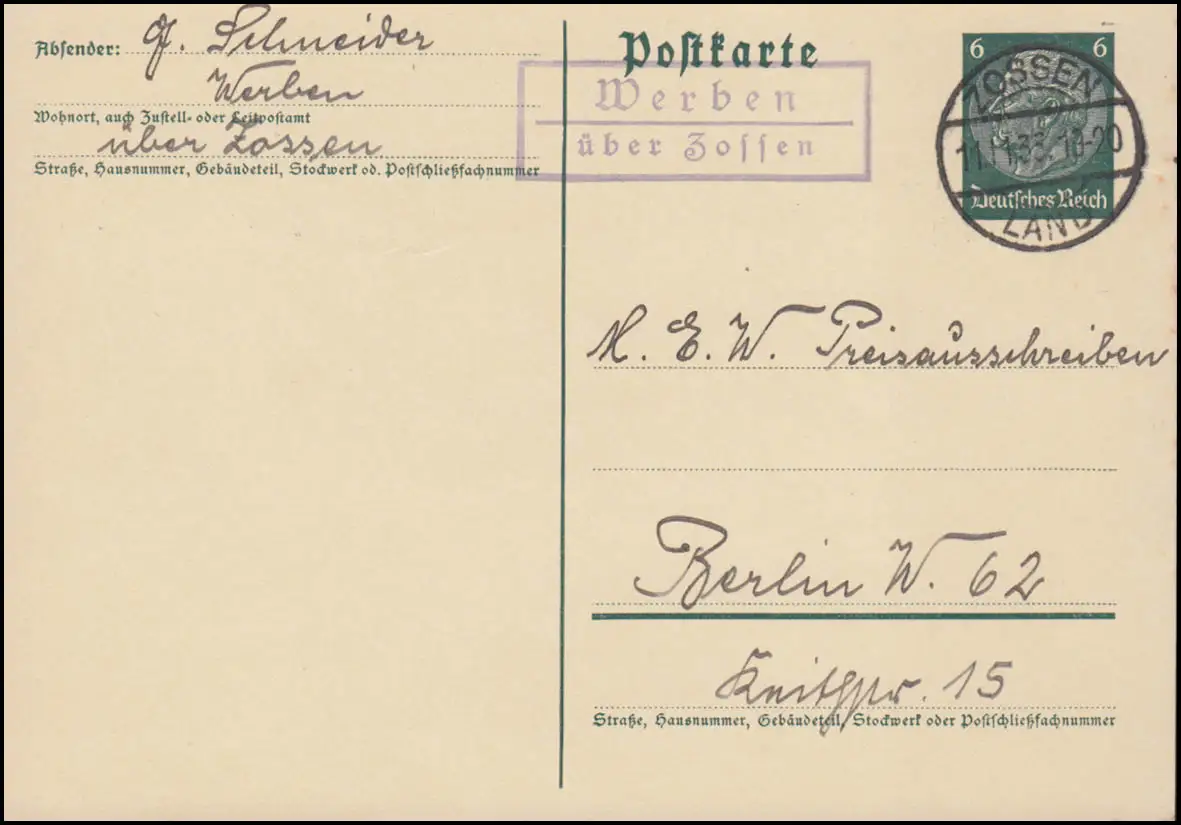 Absender: G. Schneider
Werben
Wohnort, auch Zustell- oder Leitpostamt
über Zossen
Straße, Hausnummer, Gebäudeteil, Stockwerk od. Postschließfachnummer
Postkarte
Werben
über Zossen
6 6
Deutsches Reich
ZOSSEN
LAND
E. W. Preisausschreiben
Berlin W. 62
Keithstr. 15
Straße, Hausnummer, Gebäudeteil, Stockwerk oder Postschließfachnummer